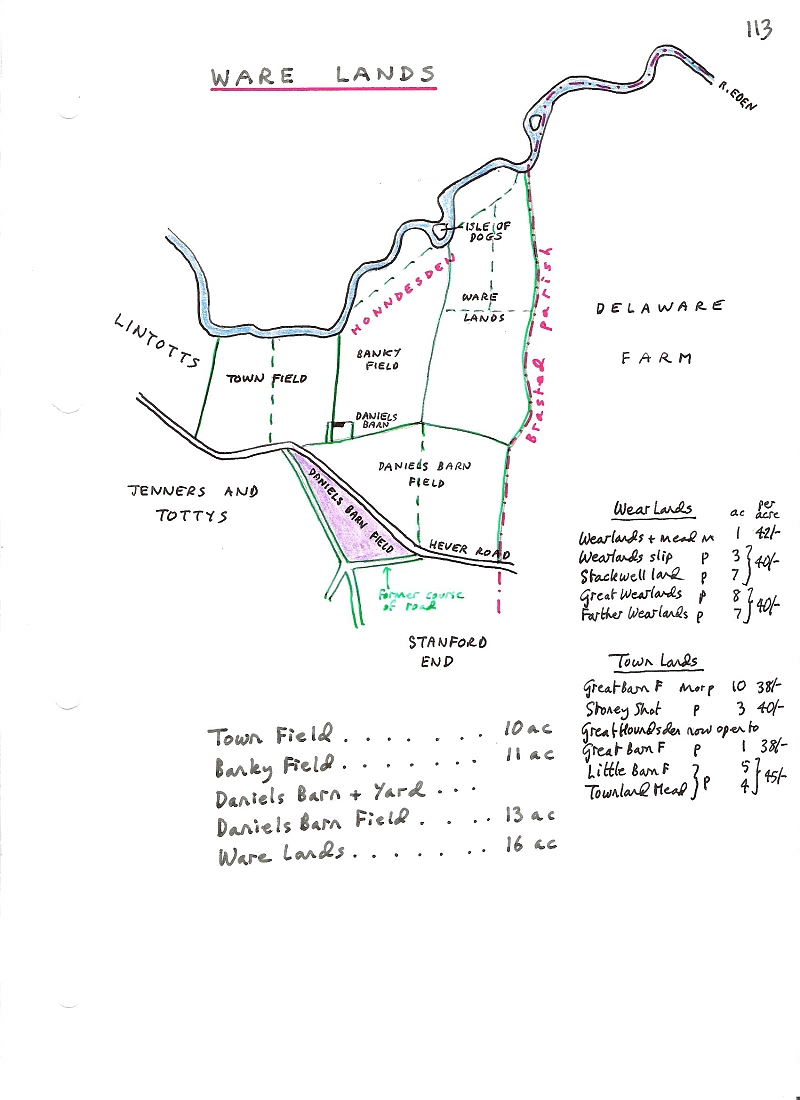 113
WARE LANDS
R. EDEN
ISLE OF
DOGS
HONNDESDEN
WARE
LANDS
Brasted Parish
DELAWARE
FARM
LINTOTTS
TOWN FIELD
BANKY
FIELD
DANIELS
BARN
DANIELS BARN
FIELD
DANIELS BARN FIELD
JENNERS AND
TOTTYS
HEVER ROAD
Former course
of road
STANFORD
END
Wear Lands ac per acre
Wearlands + mead m 1 42/-
Wearlands slip p 3
Stackwell land p 7 } 40/-
Great Wearlands p 8
Farther Wearlands p 7 } 40/-
Town Lands
Great Barn F m or p 10 38/-
Stoney Shot p 3 40/-
Great Hounsden now open to
Great Barn F p 1 38/-
Little Barn F 5
Townland Mead } p 4 } 45/-
Town Field . . . . . . . 10 ac
Banky Field . . . . . . . 11 ac
Daniels Barn + Yard . . .
Daniels Barn Field . . . . 13 ac
Ware Lands . . . . . . . 16 ac